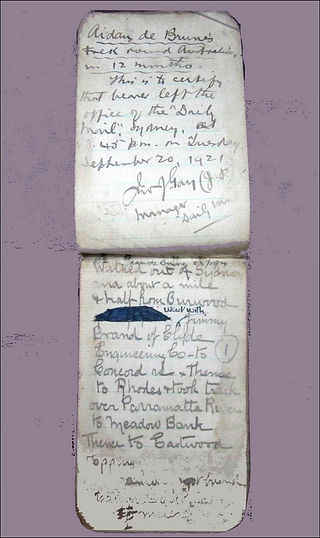 Aidan de Brune's
trek round Australia,
in 12 months.
This is to certify
that bearer left the
office of the "Daily
Mail", Sydney, at
3.45 p.m. on Tuesday
September 20, 1921.
Manager
Daily Mail
Walked out of Sydney
and about a mile
& half from Burwood
went with Jimmy
Brand of Clyde
Engineering Co to
Concord and thence
to Rhodes & took track
over Parramatta River
to Meadow Bank
thence to Eastwood
Epping
1